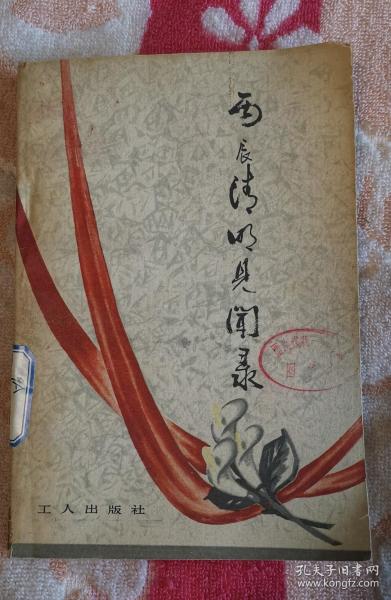 丙辰清明见闻录
工人出版社
孔夫子旧书网
www.kongfz.com